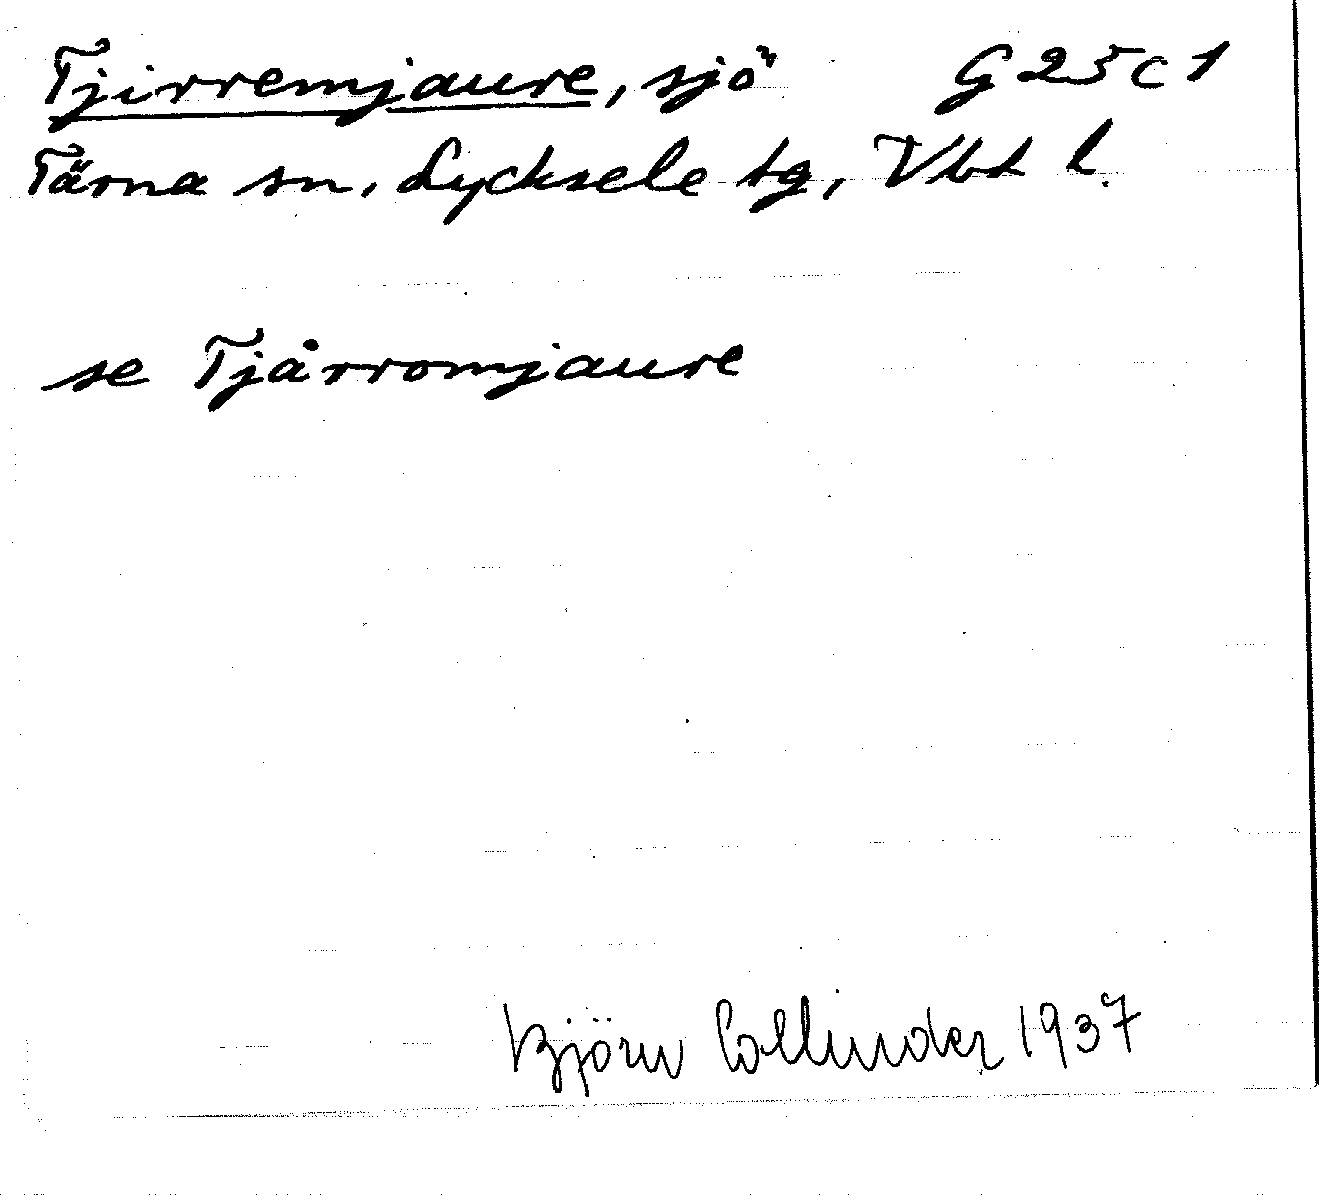 Tjirremjaure, sjö G 25 c 1
Tärna sn, Lycksele tg, Vbt l.
se Tjårromjaure
Björn Collinder 1937